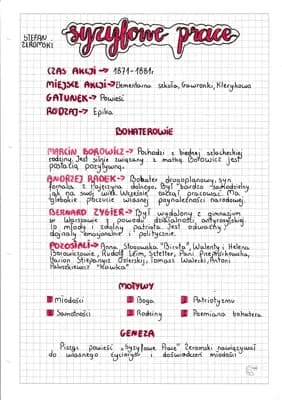 STEFAN
ŻEROMSKI
syzyfowe prace
CZAS AKCJI → 1871-1881r
MIEJSCE AKCJI → Elementarna szkoła, Gawronki, Klerykowo
GATUNEK → Powieść
RODZAJ → Epika
BOHATEROWIE
MARCIN BOROWICZ → Pochodzi z biednej szlacheckiej
rodziny. Jest silnie związany z matką. Borowicz jest
postacią pozytywną.
ANDRZEJ RADEK → Bohater drugoplanowy, syn
fornala z Pajęczyna dolnego. Był bardzo samodzielny
jak na swój wiek. Wcześnie zaczął pracować. Ma
głębokie poczucie własnej przynależności narodowej.
BERNARD ZYGIER → Był wydalony z gimnazjum
w Warszawie z powodu działalności
To młody i zdolny patriota. Jest odważny,
dojrzały emocjonalnie i politycznie.
POZOSTALI → Anna Stogowska "Biruta", Walenty i Helena
Borowiczowie, Rudolf Leim, Sztetter, Pani Przepiórkowska,
Marion Stiepanycz Gontala, Tomasz Walecki, Antoni
Paluszkiewicz "Kawka"
MOTYWY
Młodości
Boga
Patriotyzmu
Samotności
Rodziny
Przemiana bohatera
GENEZA
Pisząc powieść „Syzyfowe Prace" Żeromski nawiązywał
do własnego życiorysu i doświadczeń młodości